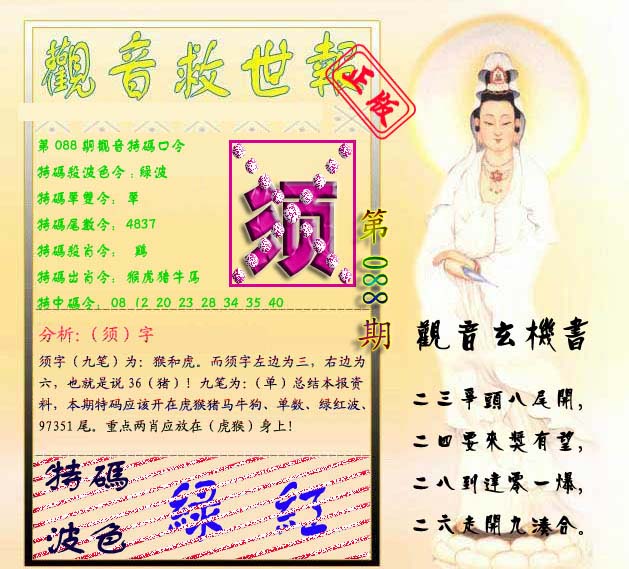 觀音救世報
正版
第088期觀音特碼口令
特碼殺波色令：綠波
特碼單雙令： 單
特碼尾數令： 4837
特碼殺肖令： 鷄
特碼出肖令： 猴虎猪牛馬
特中碼令： 08 12 20 23 28 34 35 40
须
第088期
分析:（须）字
须字（九笔）为：猴和虎。而须字左边为三，右边为
六，也就是说 36（猪）！九笔为：（单）总结本报资
料，本期特码应该开在虎猴猪马牛狗、单数、绿红波、
97351 尾。重点两肖应放在（虎猴）身上！
特碼
波色
綠 紅
觀音玄機書
二三爭頭八尾開，
二四要來獎有望，
二八到達零一爆，
二六走開九湊合。